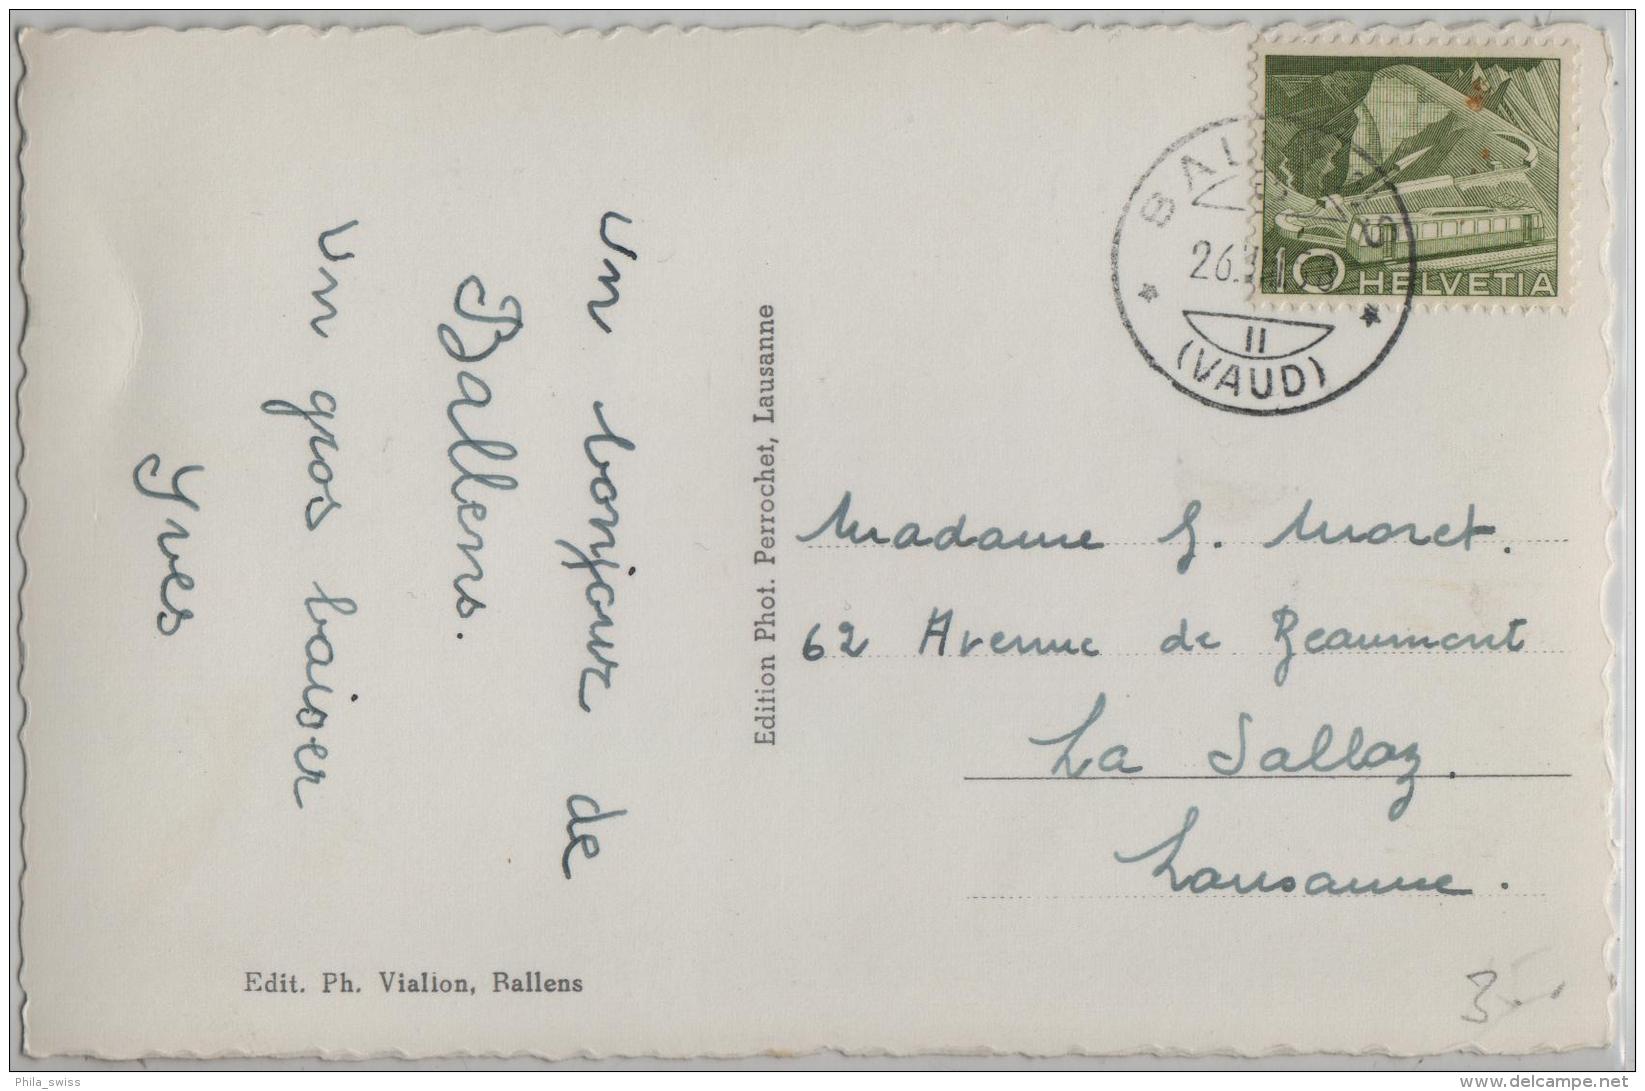 Un bonjour de
Ballens.
Un gros baiser
Yves
Edition Phot. Perrochet, Lausanne
Edit. Ph. Vialion, Ballens
10 HELVETIA
BALLENS
II
(VAUD)
Madame G. Moret.
62 Avenue de Beaumont
La Sallaz.
Lausanne.
3.-
Phila_swiss
delcampe.net